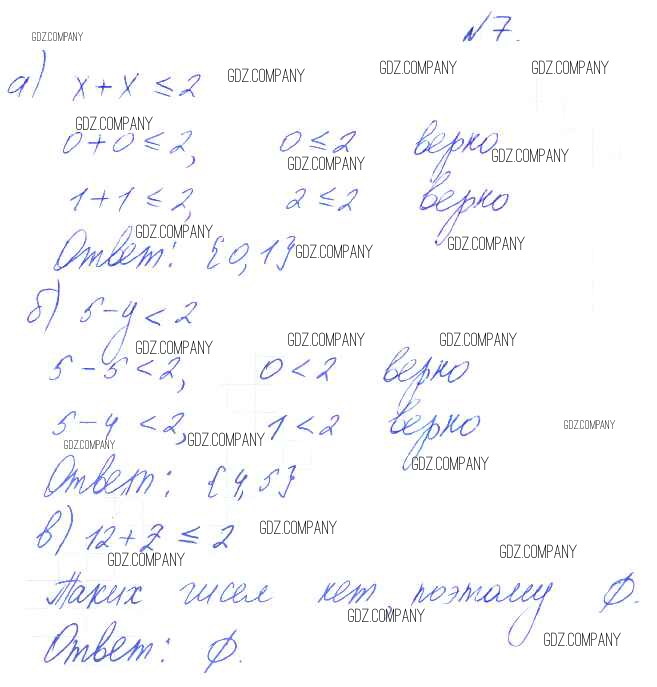 №7.
GDZ.COMPANY
GDZ.COMPANY GDZ.COMPANY GDZ.COMPANY
а) x + x ≤ 2
GDZ.COMPANY
0 + 0 ≤ 2, 0 ≤ 2 верно
GDZ.COMPANY GDZ.COMPANY
1 + 1 ≤ 2, 2 ≤ 2 верно
GDZ.COMPANY GDZ.COMPANY
Ответ: {0, 1}
GDZ.COMPANY
б) 5 - y < 2
GDZ.COMPANY GDZ.COMPANY GDZ.COMPANY
5 - 5 < 2, 0 < 2 верно
5 - 4 < 2, 1 < 2 верно
GDZ.COMPANY GDZ.COMPANY GDZ.COMPANY
GDZ.COMPANY
Ответ: {4, 5}
в) 12 + z ≤ 2
GDZ.COMPANY
GDZ.COMPANY GDZ.COMPANY
Таких чисел нет, поэтому Ø.
GDZ.COMPANY
Ответ: Ø.
GDZ.COMPANY